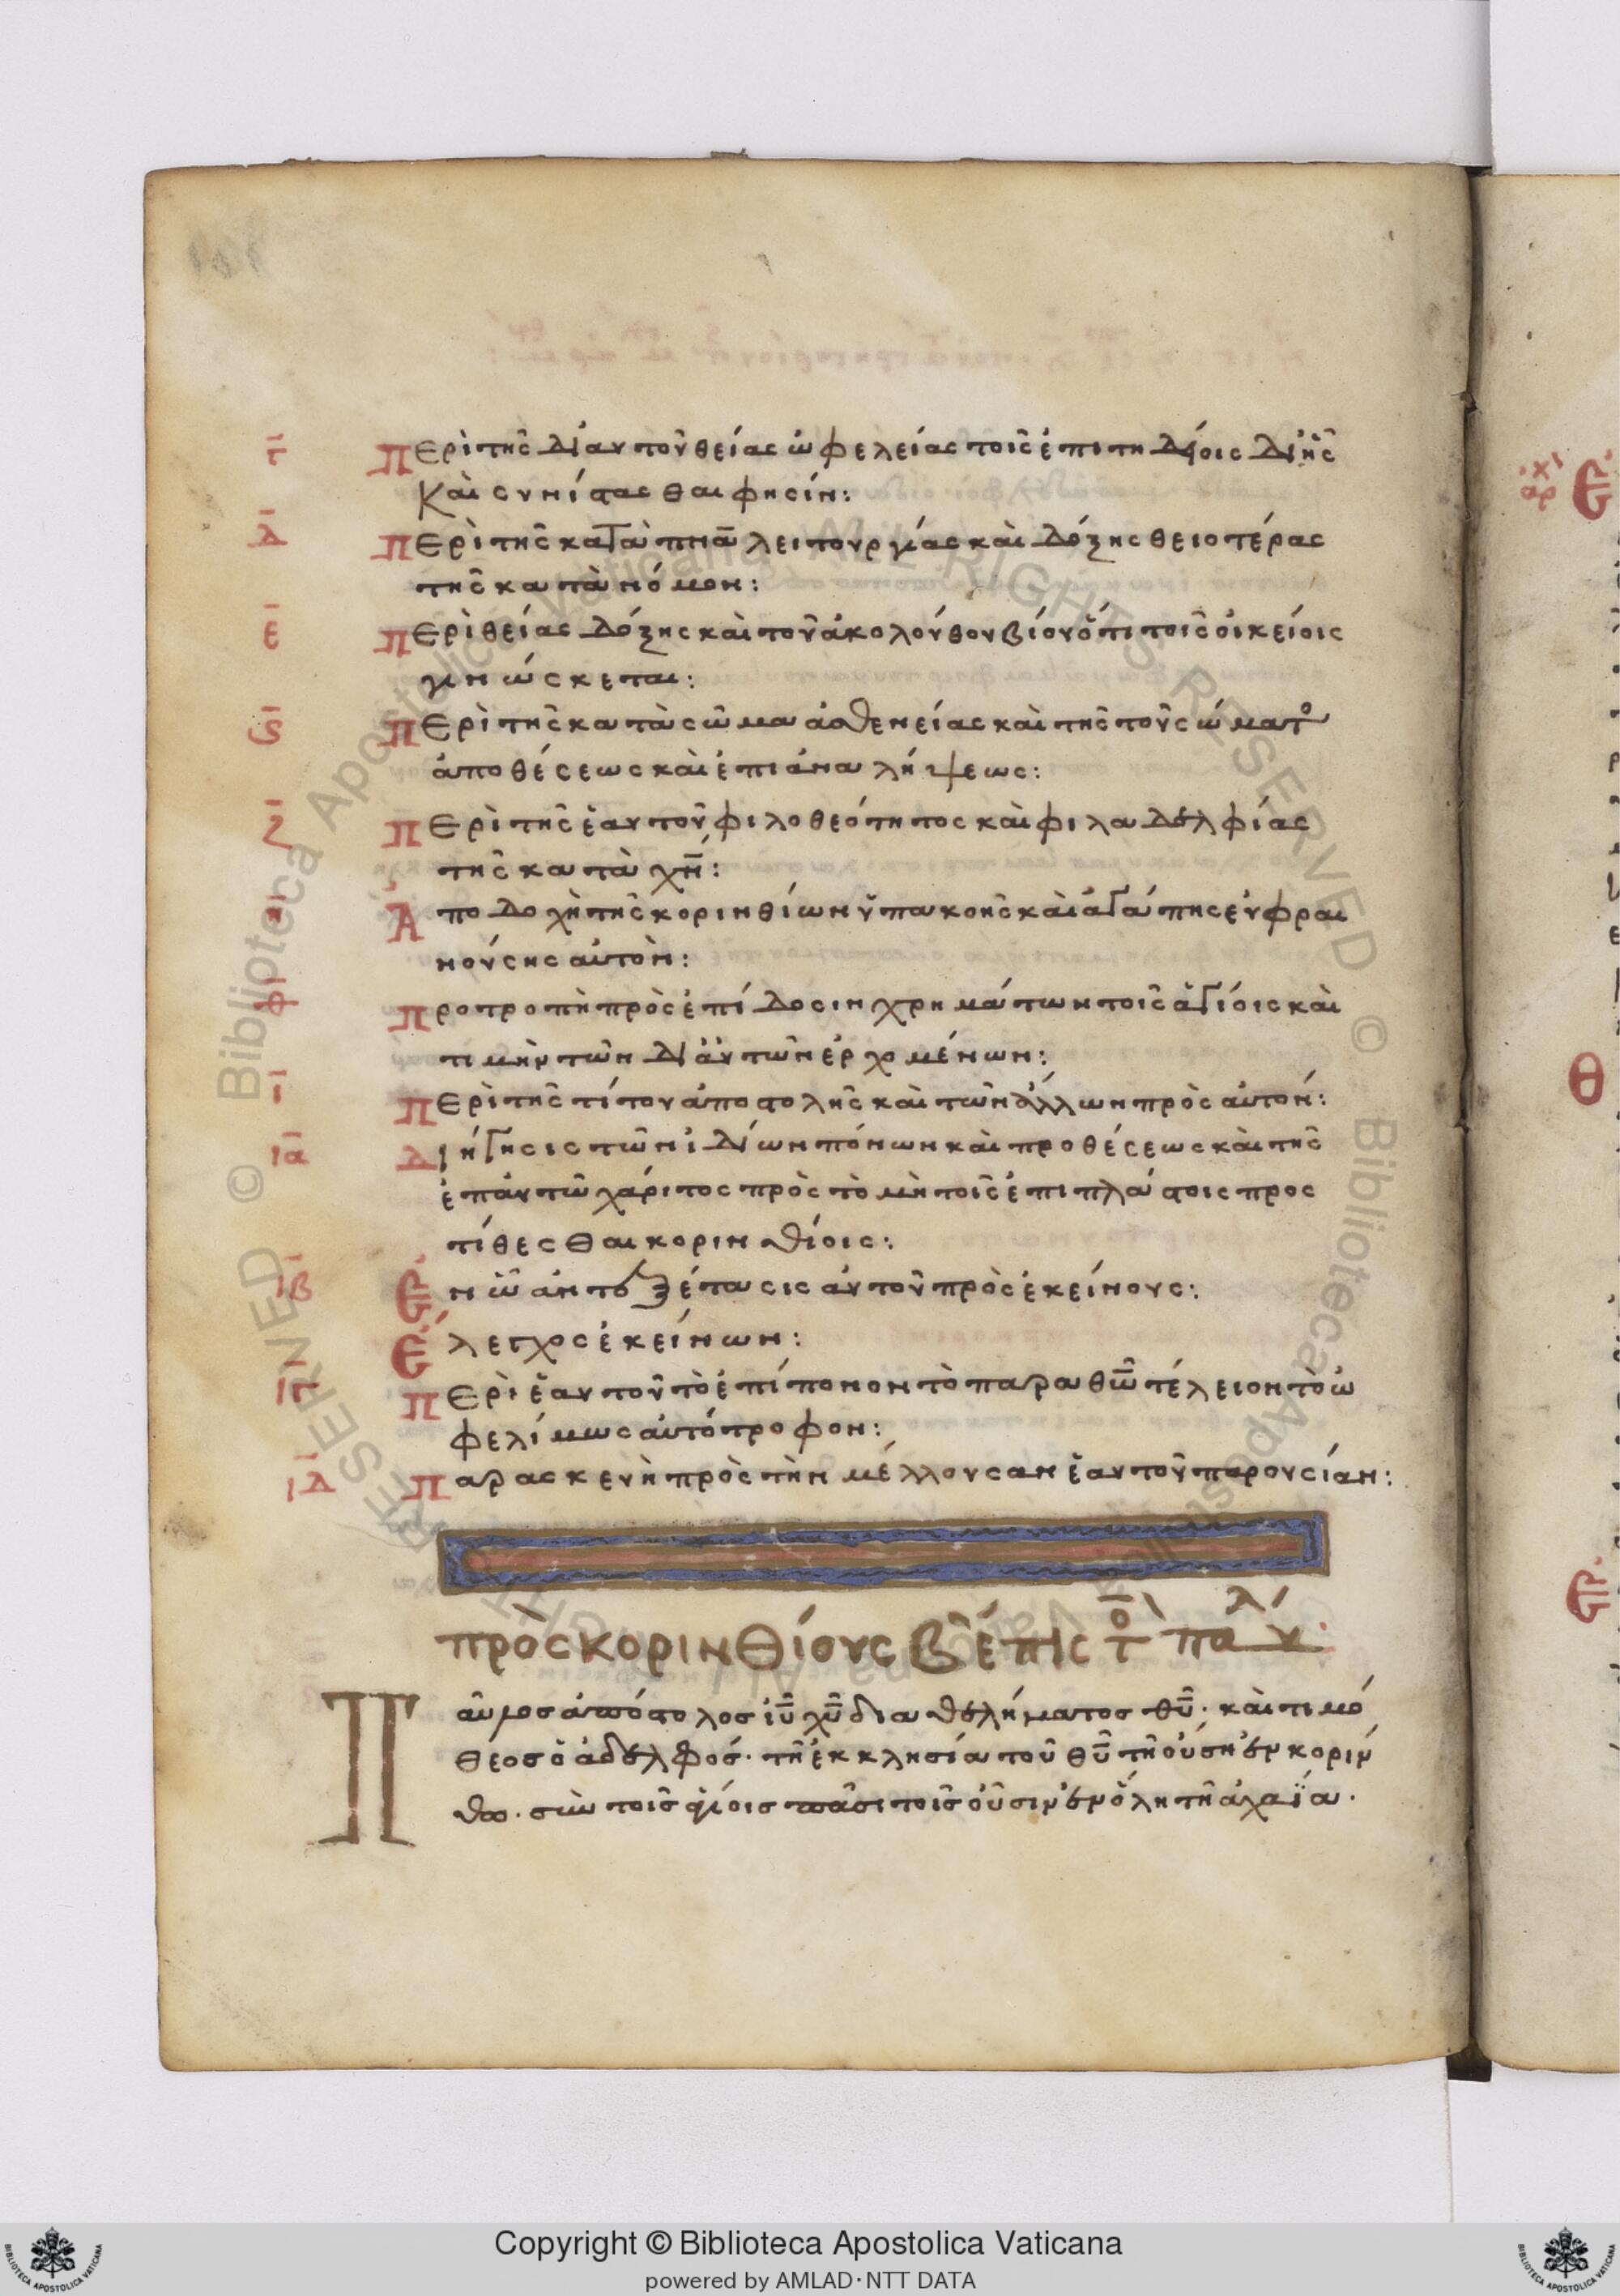 γ Περὶ τῆς δι αυτοῦ θείας ὠφελείας τοῖς ἐπιτηδίοις δι ἧς
και συνίστασθαι φησίν:
δ Περὶ τῆς κατὰ πνα λειτουργίας καὶ δόξης θειοτέρας
της κατὰ νόμον:
ε Περὶ θείας δόξης καὶ τοῦ ἀκολούθου βίου ὅτι τοῖς οἰκείοις
γινώσκεται:
ϛ Περὶ τῆς κατὰ σῶμα ἀσθενείας καὶ τῆς τοῦ σώματο
ἀποθέσεως καὶ ἐπιαναλήψεως:
ζ Περὶ τῆς ἑαυτοῦ φιλοθεότητος καὶ φιλαδελφίας
τῆς κατὰ χν:
Ἀποδοχὴ τῆς κορινθίων ὑπακοῆς καὶ ἀγάπης εὐφραι
νούσης αὐτὸν:
Προτροπὴ πρὸς ἐπίδοσιν χρημάτων τοῖς ἁγίοις καὶ
τιμὴν τῶν δι αὐτῶν ἐρχομένων:
ι Περὶ τῆς τίτου ἀποστολῆς καὶ τῶν ἄλλων πρὸς αὐτόν:
ια Διήγησις τῶν ἰδίων πόνων καὶ προθέσεως καὶ τῆς
ἐπ αὐτῶ χάριτος πρὸς τὸ μὴ τοῖς ἐπιπλάστοις προσ
τίθεσθαι κορινθίοις:
ιβ Ἐν ὧ ἀντεξέτασις αὐτοῦ πρὸς ἐκείνους:
Ἔλεγχος ἐκείνων:
ιγ Περὶ ἑαυτοῦ τὸ ἐπίπονον τὸ παρα θω τέλειον τὸ ὠ
φελίμως αὐτότροφον:
ιδ Παρασκευὴ πρὸς τὴν μέλλουσαν ἑαυτοῦ παρουσίαν:
πρὸς κορινθίους β ἐπισ τ παυλ
Παῦλος ἀπόστολος ιυ χυ δια θελήματος θυ· καὶ τιμό
θεος ὁ ἀδελφός· τῆ ἐκκλησία τοῦ θυ τῆ οὔση ἐν κοριν
θω· σὺν τοῖς ἁγίοις πᾶσι τοῖς οὖσιν ἐν ὅλη τῆ ἀχαΐα·
Copyright © Biblioteca Apostolica Vaticana
powered by AMLAD·NTT DATA